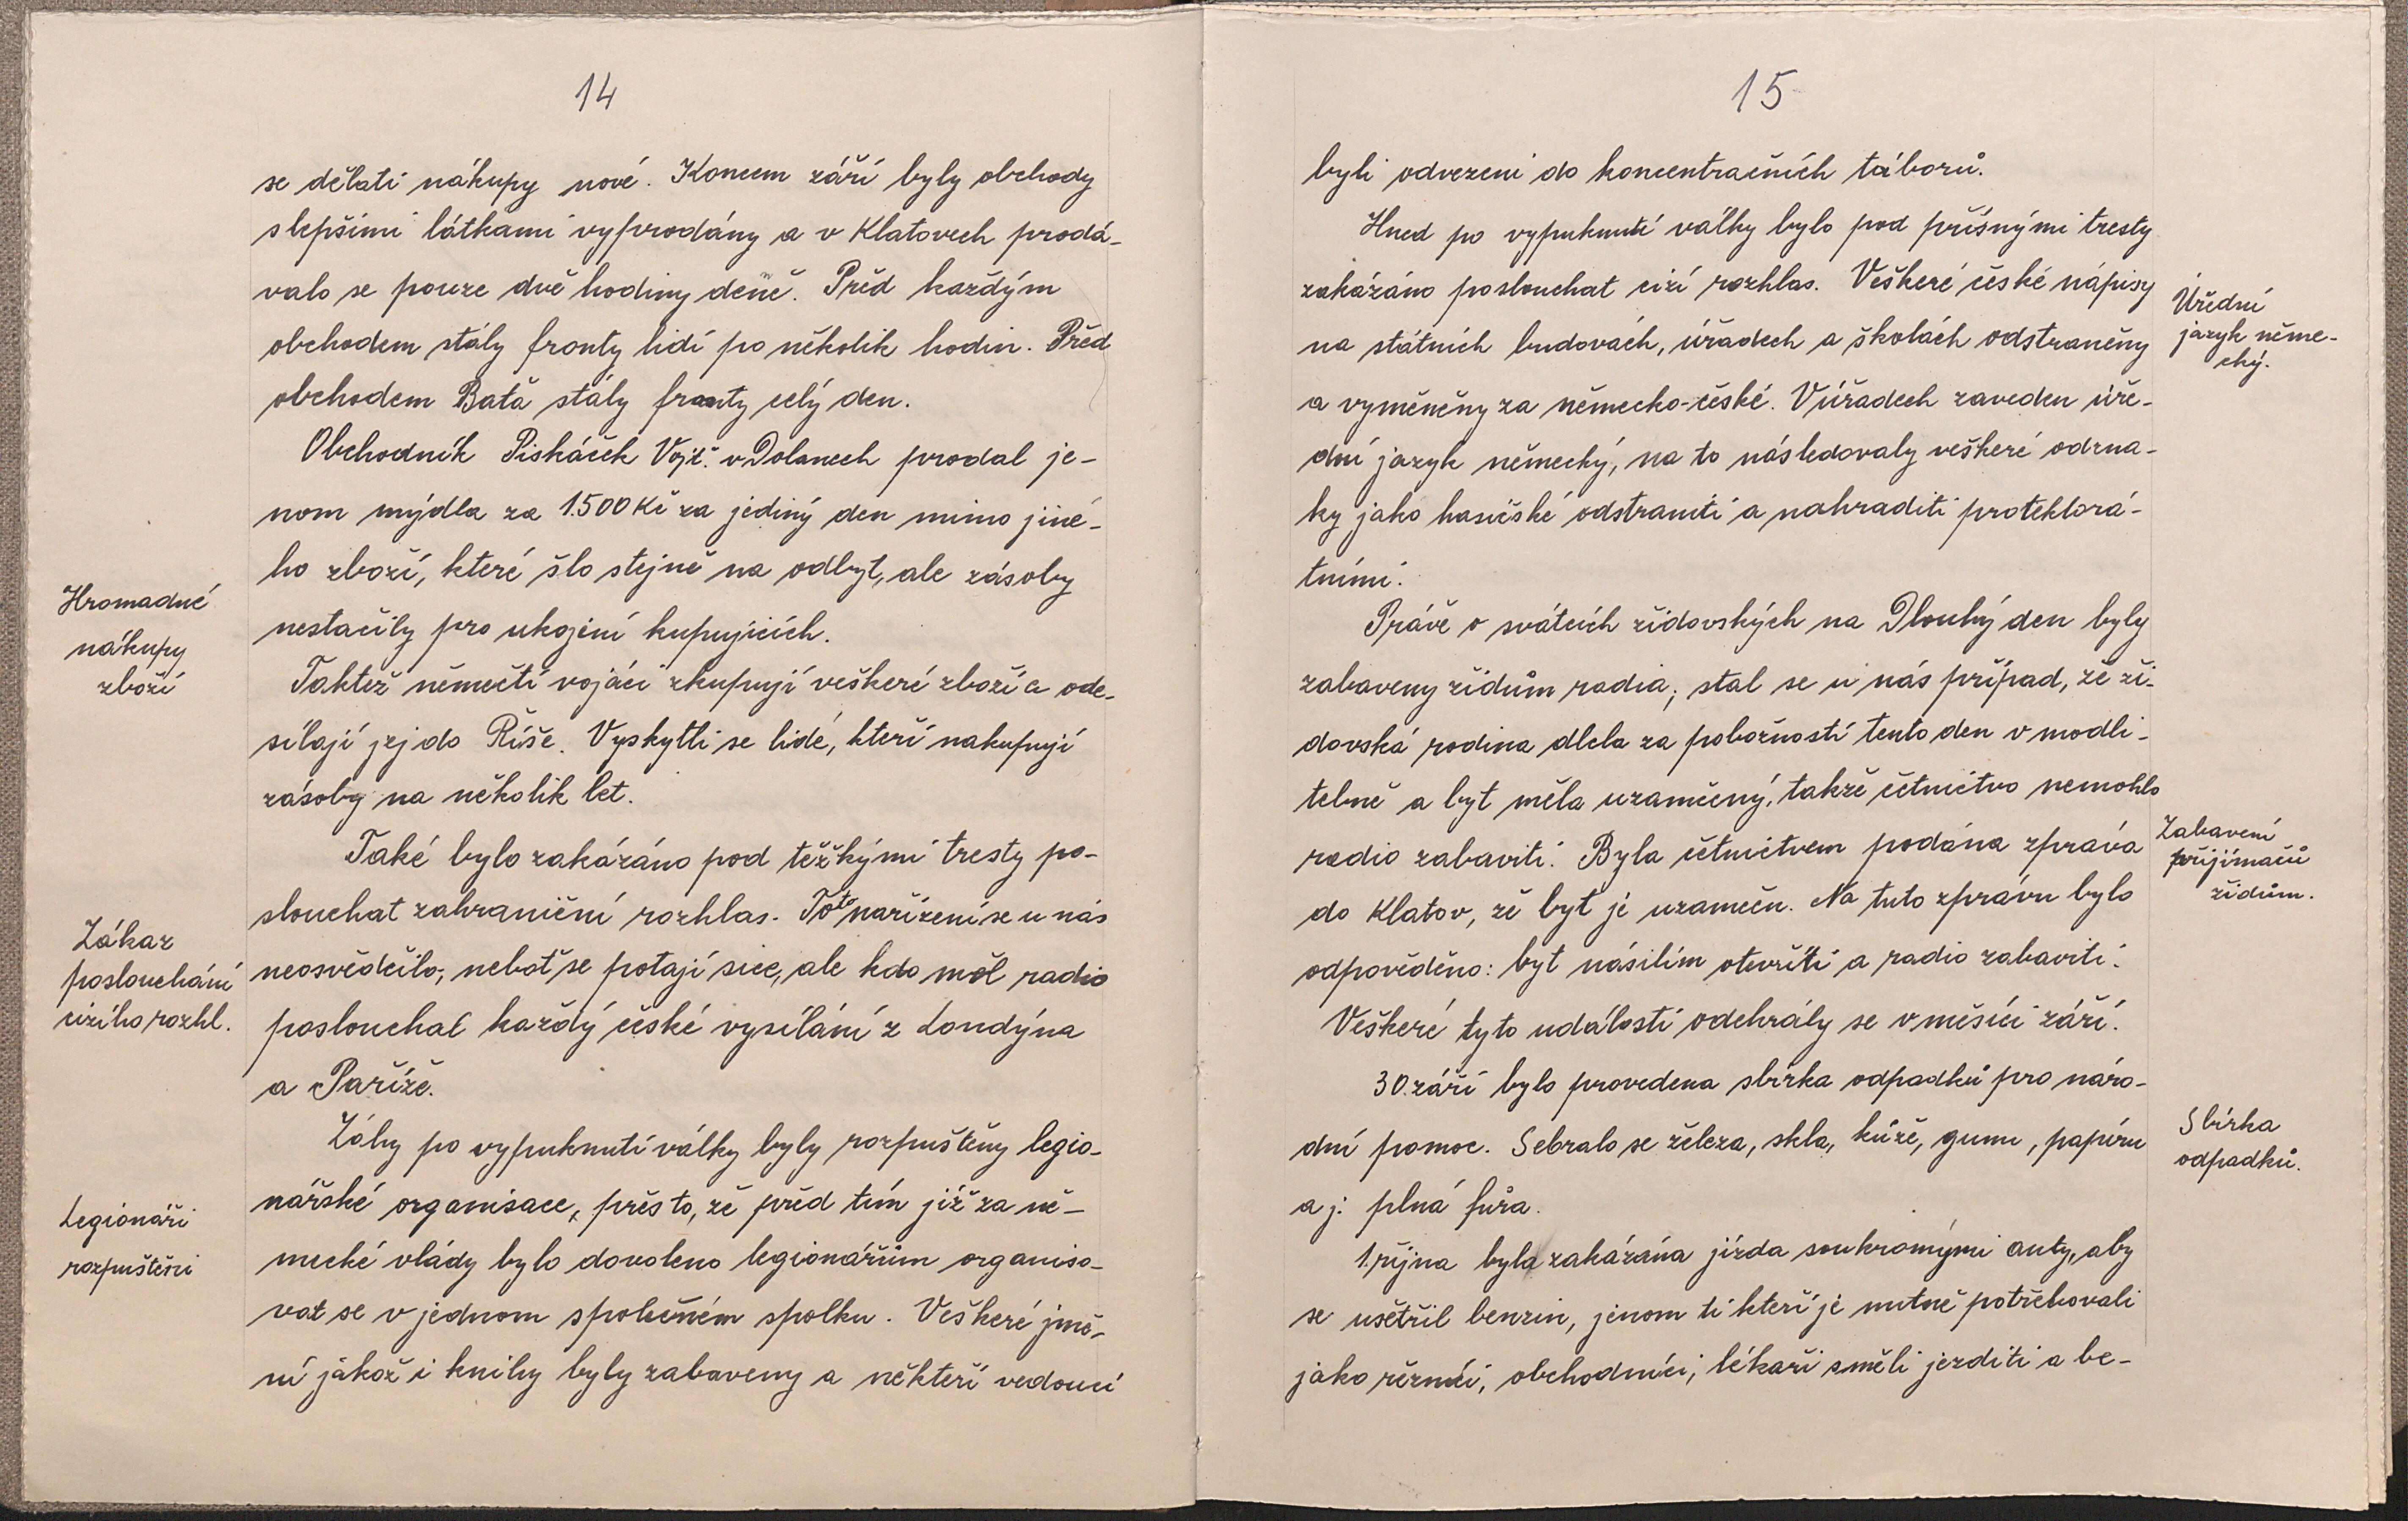 14
se dělati nákupy nové. Koncem září byly obchody
s lepšími látkami vyprodány a v Klatovech prodá-
valo se pouze dvě hodiny deně. Před každým
obchodem stály fronty lidí po několik hodin. Před
obchodem Baťa stály fronty celý den.
Obchodník Piskáček Vojt. v Dolanech prodal je-
nom mýdla za 1.500 Kč za jediný den mimo jiné-
ho zboží, které šlo stejně na odbyt, ale zásoby
Hromadné
nákupy
zboží
nestačily pro ukojení kupujících.
Taktéž němečtí vojáci skupují veškeré zboží a ode-
sílají jej do Říše. Vyskytli se lidé, kteří nakupují
zásoby na několik let.
Také bylo zakázáno pod těžkými tresty po-
slouchat zahraniční rozhlas. Toto nařízení se u nás
Zákaz
poslouchání
cizího rozhl.
neosvědčilo, neboť se potají sice, ale kdo měl radio
poslouchal každý české vysílání z Londýna
a Paříže.
Záhy po vypuknutí války byly rozpuštěny legio-
nářské organisace, přes to, že před tím již za ně-
Legionáři
rozpuštěni
mecké vlády bylo dovoleno legionářům organiso-
vat se v jednom společném spolku. Veškeré jmě-
ní jakož i knihy byly zabaveny a někteří vedoucí
15
byli odvezeni do koncentračních táborů.
Hned po vypuknutí války bylo pod přísnými tresty
zakázáno poslouchat cizí rozhlas. Veškeré české nápisy
Úřední
jazyk něme-
cký.
na státních budovách, úřadech a školách odstraněny
a vyměněny za německo-české. V úřadech zaveden úře-
dní jazyk německý, na to následovaly veškeré odzna-
ky jako hasičské odstraniti a nahraditi protektorá-
tními.
Právě o svátcích židovských na Dlouhý den byly
zabaveny židům radia, stal se u nás případ, že ži-
dovská rodina dlela za pobožností tento den v modli-
tebně a byt měla uzamčený, takže četnictvo nemohlo
radio zabaviti. Byla četnictvem podána zpráva
Zabavení
přijímačů
židům.
do Klatov, že byt je uzamčen. Na tuto zprávu bylo
odpověděno: byt násilím otevříti a radio zabaviti.
Veškeré tyto události odehrály se v měsíci září.
30. září bylo provedena sbírka odpadků pro náro-
dní pomoc. Sebralo se železa, skla, kůže, gumu, papíru
Sbírka
odpadků.
a j. plná fůra.
1. října byla zakázána jízda soukromými auty, aby
se ušetřil benzin, jenom ti kteří je nutně potřebovali
jako řezníci, obchodníci, lékaři směli jezditi a be-